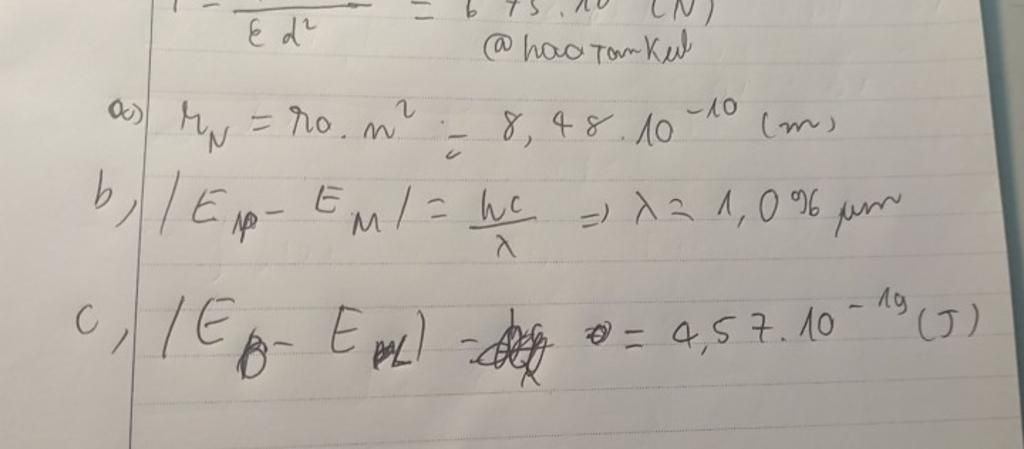 = 6 75.10 (N)
ε d²
@haoTamKul
a) r_N = r0. n² = 8,48.10⁻¹⁰ (m)
b, |E_NP - E_M| = hc/λ => λ = 1,096 μm
c, |E_B - E | = = 4,57.10⁻¹⁹ (J)